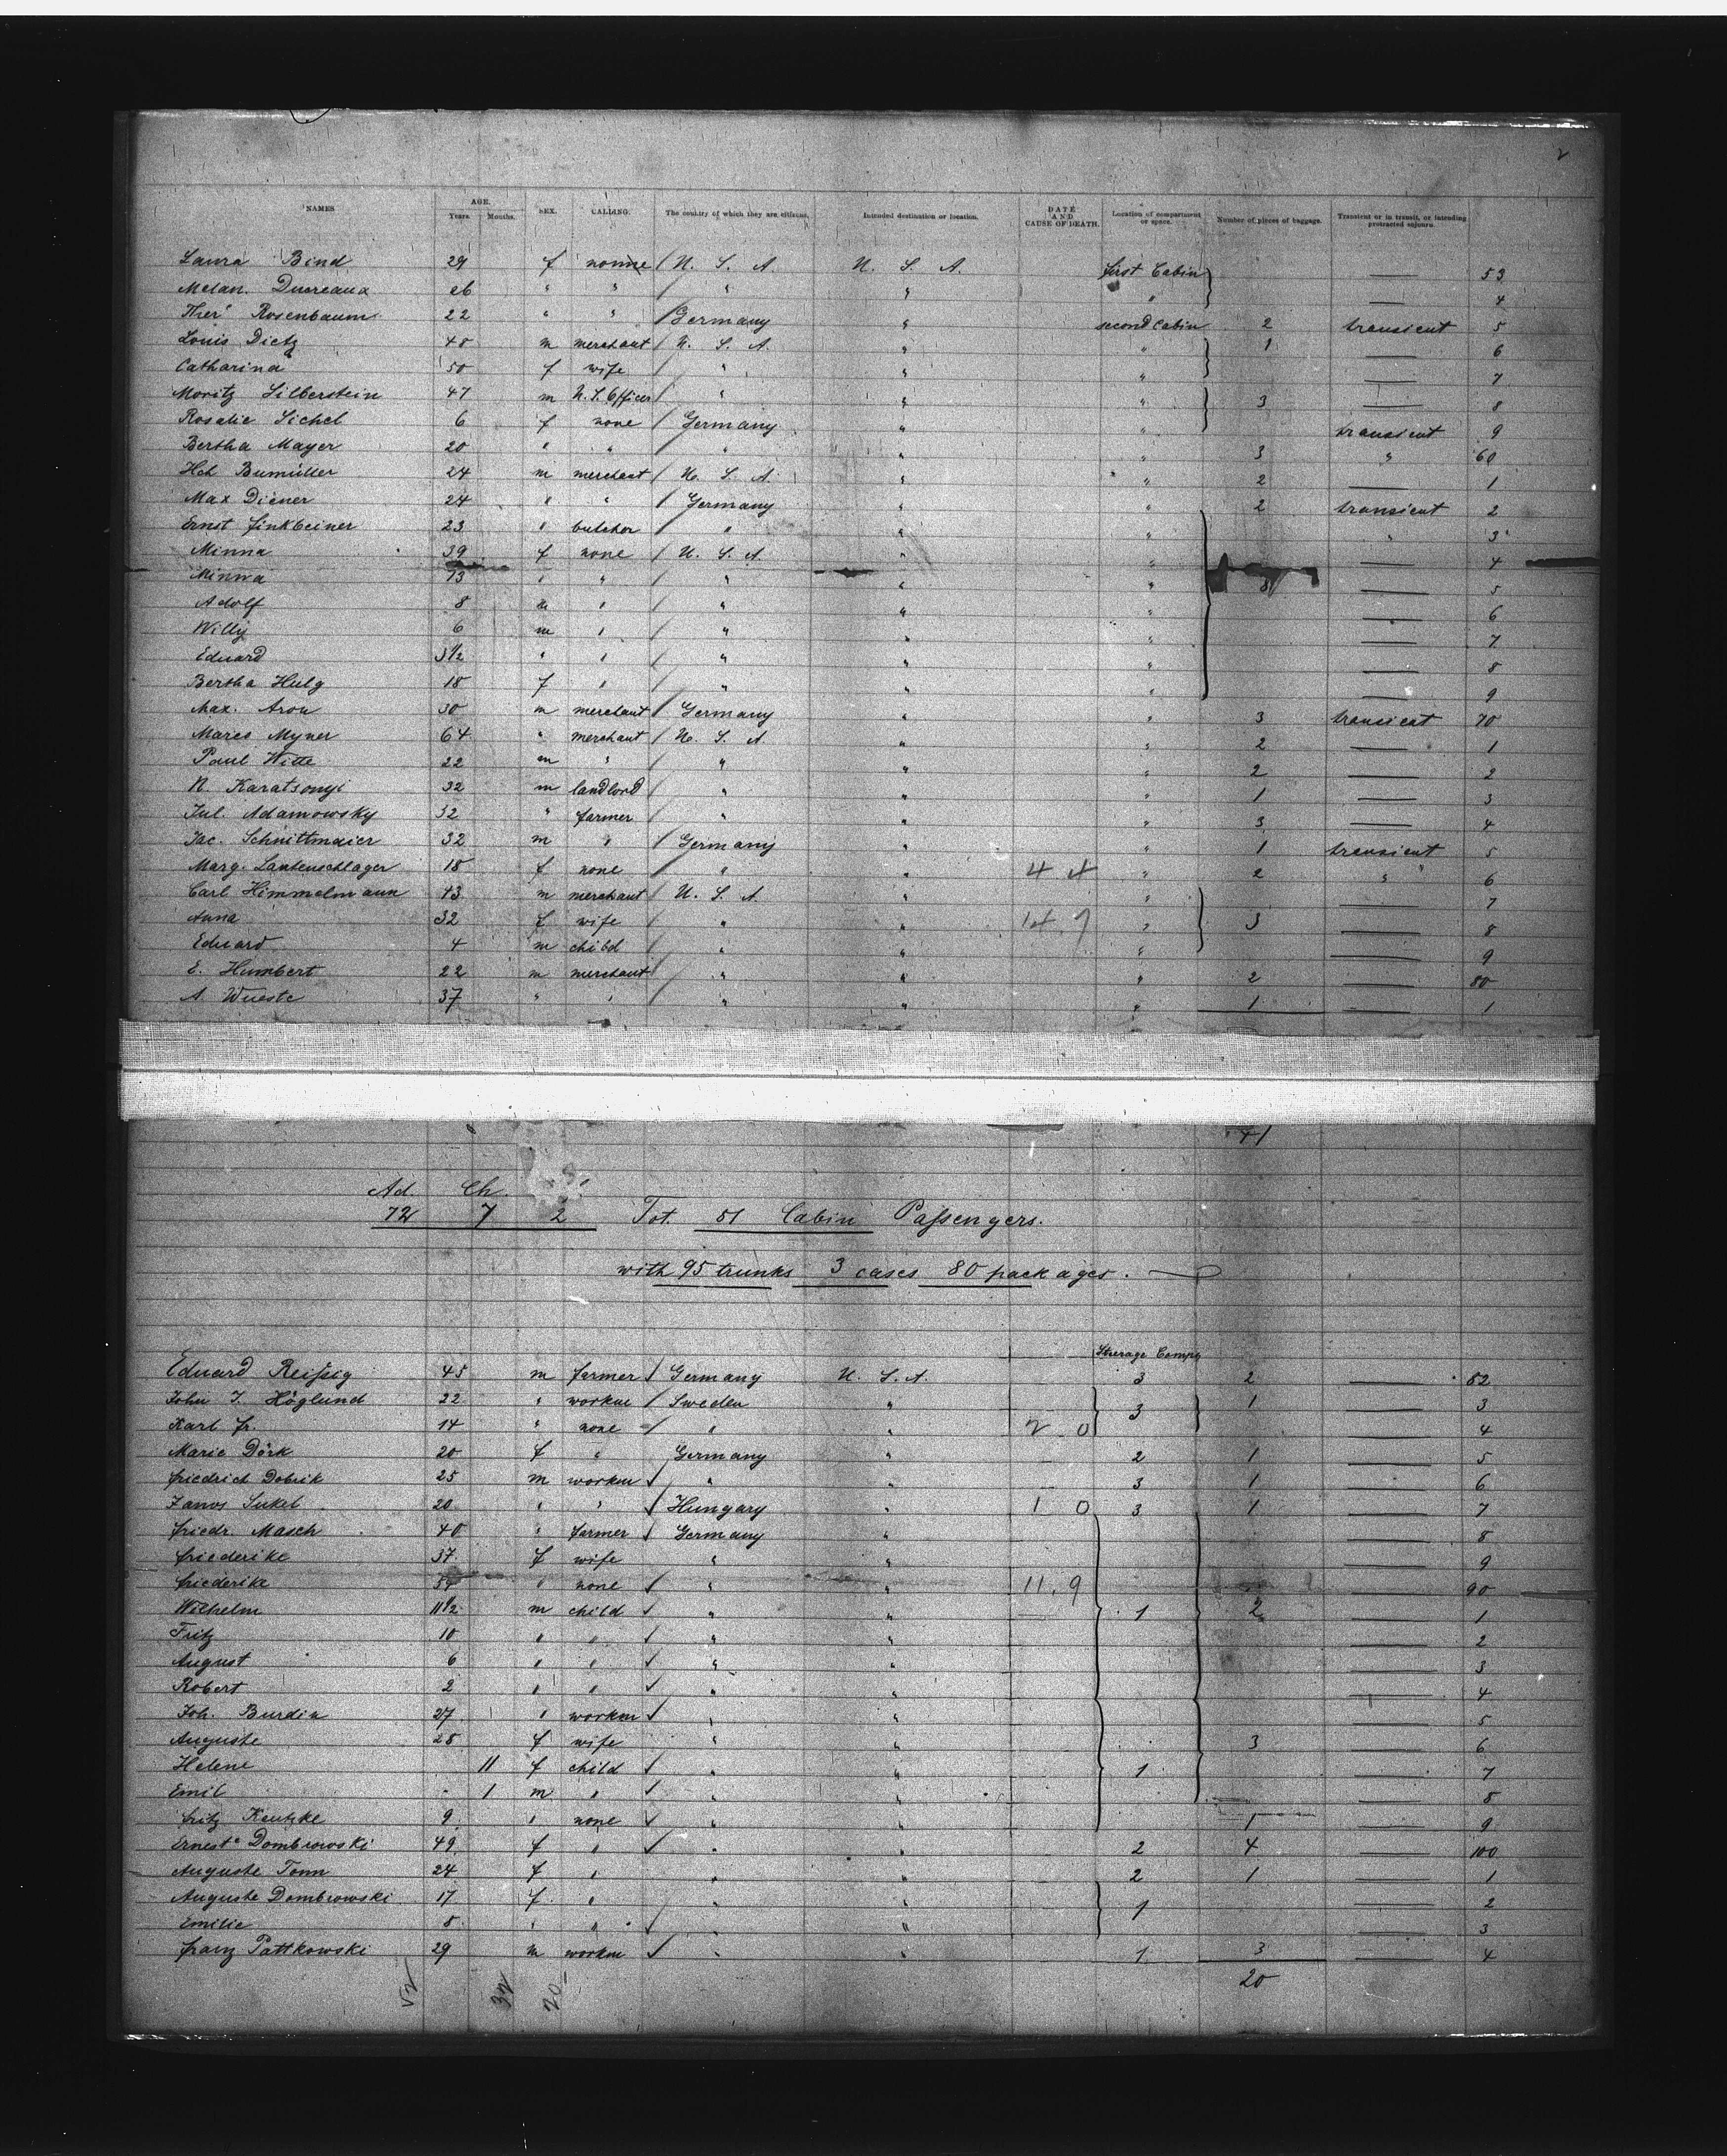 2
NAMES AGE. Years. Months. SEX. CALLING. The country of which they are citizens. Intended destination or location. DATE AND CAUSE OF DEATH. Location of compartment or space. Number of pieces of baggage. Transient or in transit, or intending protracted sojourn.
Laura Bind 29 f nonne / U. S. A. U. S. A. first Cabin — 53
Melan. Ducreaux 26 " " / " " " — 4
Ther' Rosenbaum 22 " " / Germany " second Cabin 2 transient 5
Louis Dietz 48 m merchant / U. S. A. " " 1 — 6
Catharina 50 f wife / " " " — 7
Moritz Silberstein 47 m U.S. Officer / " " " 3 — 8
Rosalie Sichel 6 f none / Germany " " transient 9
Bertha Mayer 20 " " " " " 3 " 60
Hch Bumüller 24 m merchant / U. S. A. " " 2 — 1
Max Diener 24 " " / Germany " " 2 transient 2
Ernst Finkbeiner 23 " butcher / " " " " 3
Minna 39 f none / U. S. A. " " — 4
Minna 13 " " / " " " 8 — 5
Adolf 8 m " / " " " — 6
Willy 6 m " / " " " — 7
Eduard 3 1/2 " " / " " " — 8
Bertha Hulg 18 f " / " " " — 9
Max. Aron 30 m merchant / Germany " " 3 transient 70
Marco Myner 64 " merchant / U. S. A. " " 2 — 1
Paul Witte 22 m " / " " " 2 — 2
N. Karatsonyi 32 m landlord / " " " 1 — 3
Jul. Adamowsky 32 " farmer / " " " 3 — 4
Jac. Schnittmaier 32 m " / Germany " " 1 transient 5
Marg. Lautenschlager 18 f none / " " 4 4 " 2 " 6
Carl Himmelmann 43 m merchant / U. S. A. " " — 7
Anna 32 f wife / " " " 3 — 8
Eduard 4 m child / " " " — 9
E. Humbert 22 m merchant / " " " 2 — 80
A. Wueste 37 " " / " " " 1 — 1
41
Ad. Ch.
72 7 2 Tot. 81 Cabin Passengers.
with 95 trunks 3 cases 80 packages.
Steerage Comp.
Eduard Reißig 45 m farmer / Germany U. S. A. 3 2 — 82
John J. Höglund 22 " workm / Sweden " 3 1 — 3
Karl Fr. 14 " none / " " 2 0 — 4
Marie Dörk 20 f " Germany " 2 1 — 5
Friedrich Dobrik 25 m workm / " " 3 1 — 6
Janos Sukel 20 " " / Hungary " 1 0 3 1 — 7
Friedr. Masch 40 " farmer / Germany " — 8
Friederike 37 f wife " " — 9
Friederike 54 " none / " " 11. 9 — 90
Wilhelm 11 1/2 m child / " " 1 2 — 1
Fritz 10 " " / " " — 2
August 6 " " / " " — 3
Robert 2 " " / " " — 4
Joh. Burdin 27 " workm / " " — 5
Auguste 28 f wife " " 3 — 6
Helene 11 f child / " " 1 — 7
Emil 1 m " / " " — 8
Fritz Keutzke 9 " none / " " 1 — 9
Ernest° Dombrowski 49 f " / " " 2 4 — 100
Auguste Tonn 24 f " " " 2 1 — 1
Auguste Dombrowski 17 f " " " 1 — 2
Emilie 8 " " / " " — 3
Franz Pattkowski 29 m workm / " " 1 3 — 4
52 32 20 20